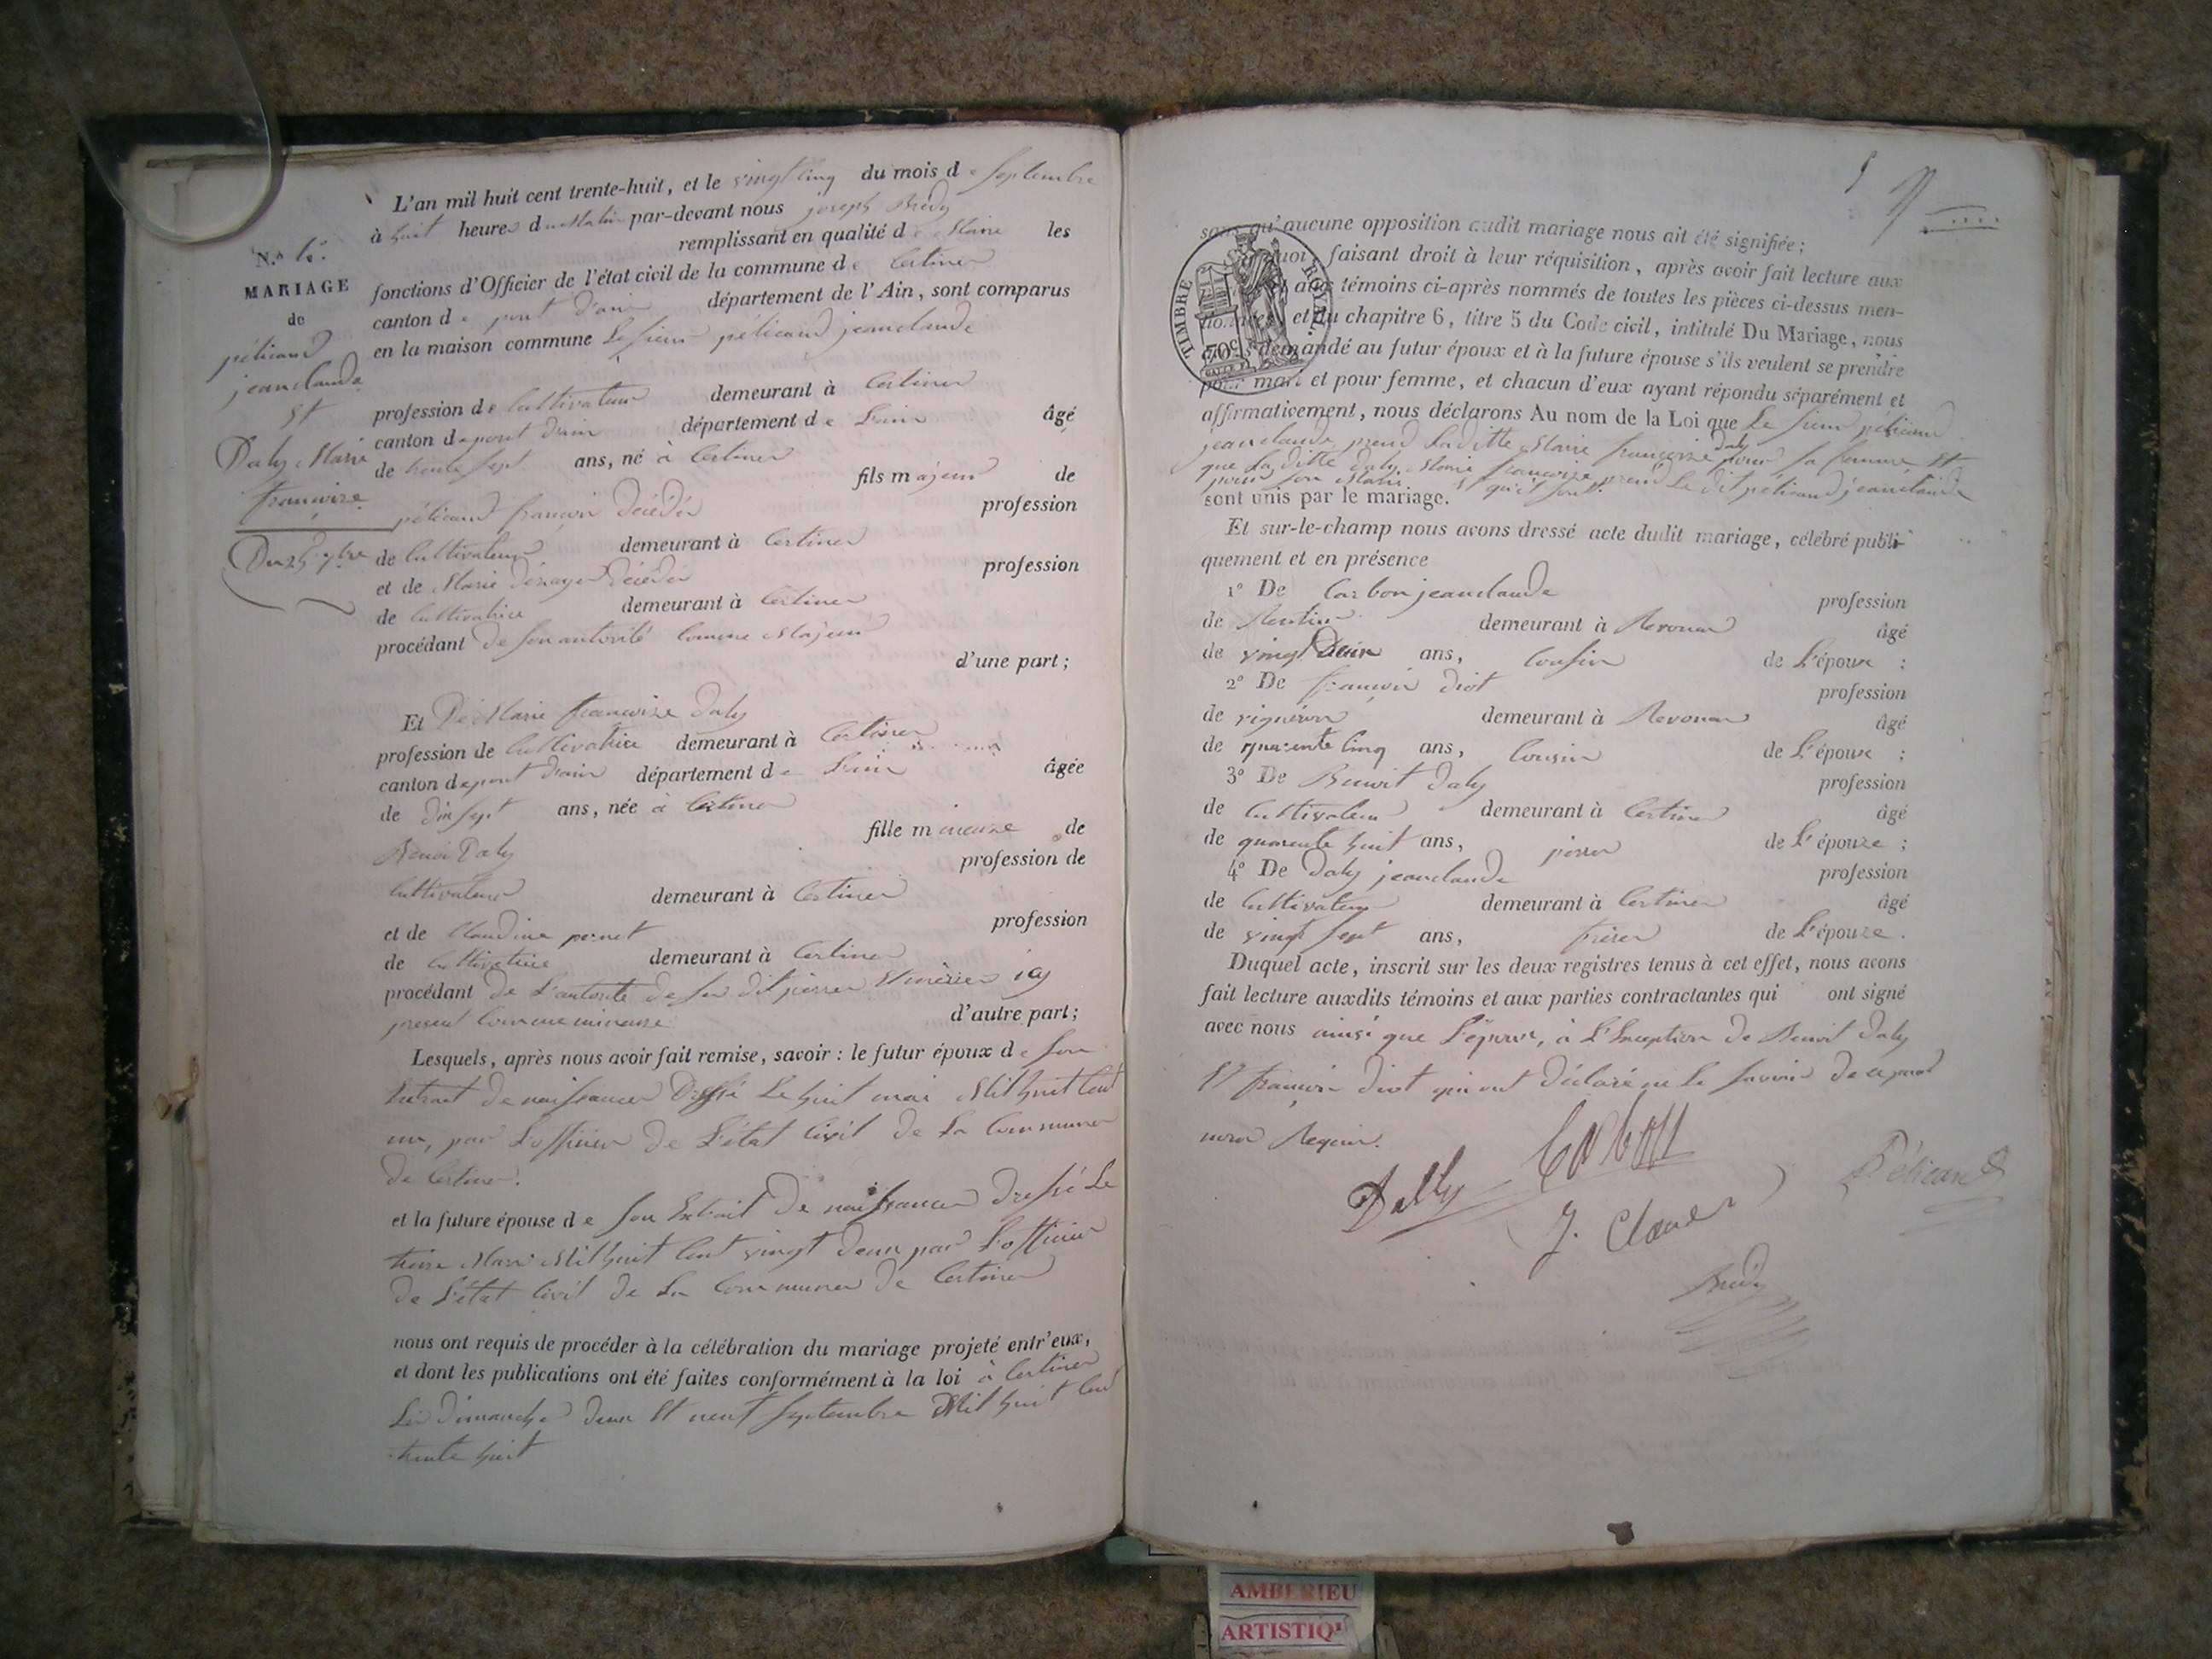 L'an mil huit cent trente-huit, et le vingt cinq du mois de Septembre
à huit heures du Matin par-devant nous joseph Bredy
remplissant en qualité de Maire les
fonctions d'Officier de l'état civil de la commune de Certines
canton de pont d'ain département de l'Ain, sont comparus
en la maison commune Le sieur pélicand jeanclaude
profession de Cultivateur demeurant à Certines
canton de pont d'ain département de L'ain âgé
de trente sept ans, né à Certines
fils majeur de
pélicand françois décédé profession
de Cultivateur demeurant à Certines
et de Marie décédée profession
de Cultivatrice demeurant à Certines
procédant de son autorité Comme Majeur
d'une part ;
N.º
MARIAGE
de
pélicand
jeanclaude
Et
Daly Marie
françoise
Du 25 7bre
Et De Marie françoise Daly
profession de Cultivatrice demeurant à Certines
canton de pont d'ain département de L'ain âgée
de dix sept ans, née à Certines
fille mineure de
Benoi Daly profession de
Cultivateur demeurant à Certines
et de Claudine pernet profession
de Cultivatrice demeurant à Certines
procédant de L'autorité de ses dit perre Et mère icy
present Comme mineure d'autre part ;
Lesquels, après nous avoir fait remise, savoir : le futur époux de son
Extrait de naissance Dressé Le huit mai Mil huit Cent
un, par L'officier de L'état Civil de La Commune
de Certines.
et la future épouse de son Extrait De naissance dressé Le
treize Mars Mil huit Cent vingt deux par L'officier
de L'état Civil de La Commune de Certines
nous ont requis de procéder à la célébration du mariage projeté entr'eux,
et dont les publications ont été faites conformément à la loi à Certines
Les dimanche deux Et neuf Septembre Mil huit Cent
trente huit
sans qu'aucune opposition audit mariage nous ait été signifiée ;
quoi, faisant droit à leur réquisition, après avoir fait lecture aux
aux témoins ci-après nommés de toutes les pièces ci-dessus men-
tionnées, et du chapitre 6, titre 5 du Code civil, intitulé Du Mariage, nous
avons demandé au futur époux et à la future épouse s'ils veulent se prendre
pour mari et pour femme, et chacun d'eux ayant répondu séparément et
affirmativement, nous déclarons Au nom de la Loi que Le sieur pélicand
jeanclaude prend Laditte Marie françoise Daly pour sa femme Et
que Laditte Daly Marie françoise prend Le dit pélicand jeanclaude
pour son Mari Et qu'il sont
sont unis par le mariage.
TIMBRE ROYAL
70c
Et sur-le-champ nous avons dressé acte dudit mariage, célébré publi-
quement et en présence
1º De Carbon jeanclaude profession
de Rentier demeurant à Revonas âgé
de vingt Deux ans, Cousin de L'époux ;
2º De françois diot profession
de vigneron demeurant à Revonas âgé
de quarante cinq ans, Cousin de L'époux ;
3º De Benoit Daly profession
de Cultivateur demeurant à Certines âgé
de quarente huit ans, perre de L'épouze ;
4º De Daly jeanclaude profession
de Cultivateur demeurant à Certines âgé
de vingt sept ans, frère de L'épouze.
Duquel acte, inscrit sur les deux registres tenus à cet effet, nous avons
fait lecture auxdits témoins et aux parties contractantes qui ont signé
avec nous ainsi que L'époux, à L'Exception de Benoit Daly
Et françois diot qui ont déclaré ne Le savoir de ce par
nous Requis.
Dally Carbon Pélicand
J. Claude
Bredy
AMBERIEU
ARTISTIQ